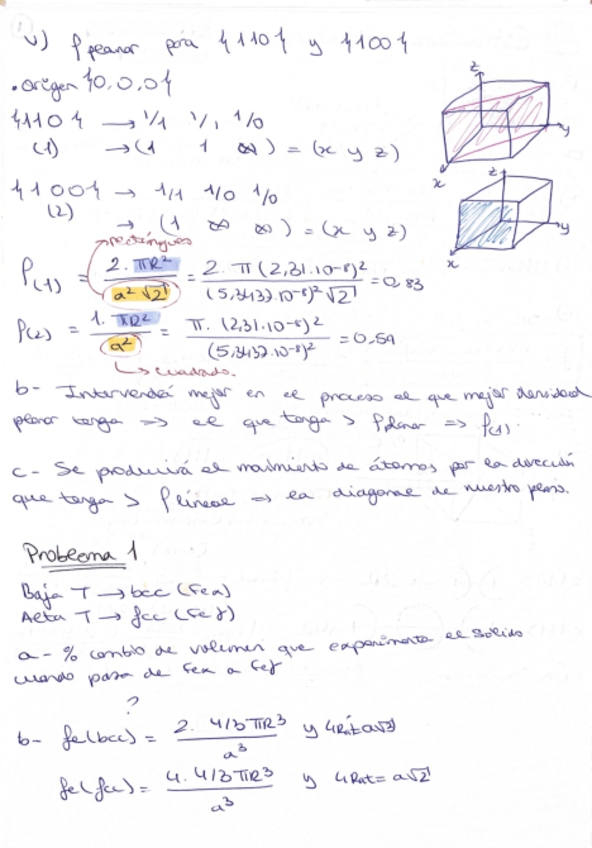 v) ρ planar para {110} y {100}
• origen {0,0,0}
{110} → 1/1 1/1 1/0
(1) → (1 1 ∞) = (x y z)
{100} → 1/1 1/0 1/0
(2) → (1 ∞ ∞) = (x y z)
z
y
x
z
y
x
rectángulos
ρ(1) = 2·πR² / a²√2 = 2·π(2,31·10⁻⁸)² / (5,3437·10⁻⁸)²√2 = 0,83
ρ(2) = 1·πR² / a² = π·(2,31·10⁻⁸)² / (5,3437·10⁻⁸)² = 0,59
↳ cuadrado.
b- Intervendrá mejor en el proceso el que mejor densidad
planar tenga => el que tenga > ρplanar => ρ(1).
c- Se producirá el movimiento de átomos por la dirección
que tenga > ρ lineal => la diagonal de nuestro plano.
Problema 1
Baja T → bcc (Feα)
Alta T → fcc (Feγ)
a- % cambio de volumen que experimenta el sólido
cuando pasa de Feα a Feγ
?
b- fe(bcc) = 2· 4/3πR³ / a³ y 4Rat=a√3
fe(fcc) = 4· 4/3πR³ / a³ y 4Rat=a√2